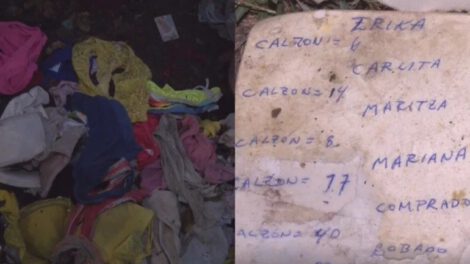 ERIKA
CALZON =
CARLITA
CALZON = 14
MARITZA
CALZON = 8
MARIANA
CALZON = 17
COMPRADO
ALZON = 40
ROBADO